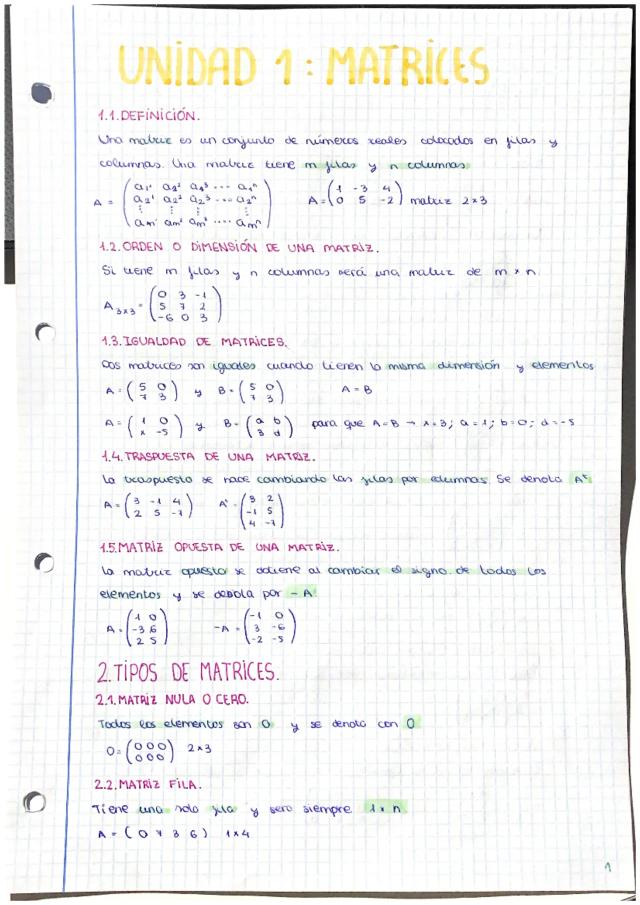 UNIDAD 1: MATRICES
1.1. DEFINICIÓN.
Una matriz es un conjunto de números reales colocados en filas y
columnas. Una matriz tiene m filas y n columnas
A = ( a₁¹ a₁² a₁³ ... a₁ⁿ
a₂¹ a₂² a₂³ ... a₂ⁿ
⋮ ⋮ ⋮ ⋮
aₘ¹ aₘ² aₘ³ .... aₘⁿ )
A = ( 1 -3 4
0 5 -2 ) matriz 2x3
1.2. ORDEN O DIMENSIÓN DE UNA MATRIZ.
Si tiene m filas y n columnas será una matriz de m x n
A₃ₓ₃ = ( 0 3 -1
5 7 2
-6 0 3 )
1.3. IGUALDAD DE MATRICES.
Dos matrices son iguales cuando tienen la misma dimensión y elementos
A = ( 5 0
7 3 ) y B = ( 5 0
7 3 ) A = B
A = ( 1 0
x -5 ) y B = ( a b
3 d ) para que A=B → x=3; a=1; b=0; d=-5
1.4. TRASPUESTA DE UNA MATRIZ.
La traspuesta se hace cambiando las filas por columnas. Se denota Aᵗ
A = ( 3 -1 4
2 5 -7 ) Aᵗ = ( 3 2
-1 5
4 -7 )
1.5. MATRIZ OPUESTA DE UNA MATRIZ.
La matriz opuesta se obtiene al cambiar el signo de todos los
elementos y se denota por -A
A = ( 1 0
-3 6
2 5 ) -A = ( -1 0
3 -6
-2 -5 )
2. TIPOS DE MATRICES.
2.1. MATRIZ NULA O CERO.
Todos los elementos son 0 y se denota con O
O = ( 0 0 0
0 0 0 ) 2x3
2.2. MATRIZ FILA.
Tiene una sola fila y será siempre 1 x n
A = ( 0 7 3 6 ) 1x4
1